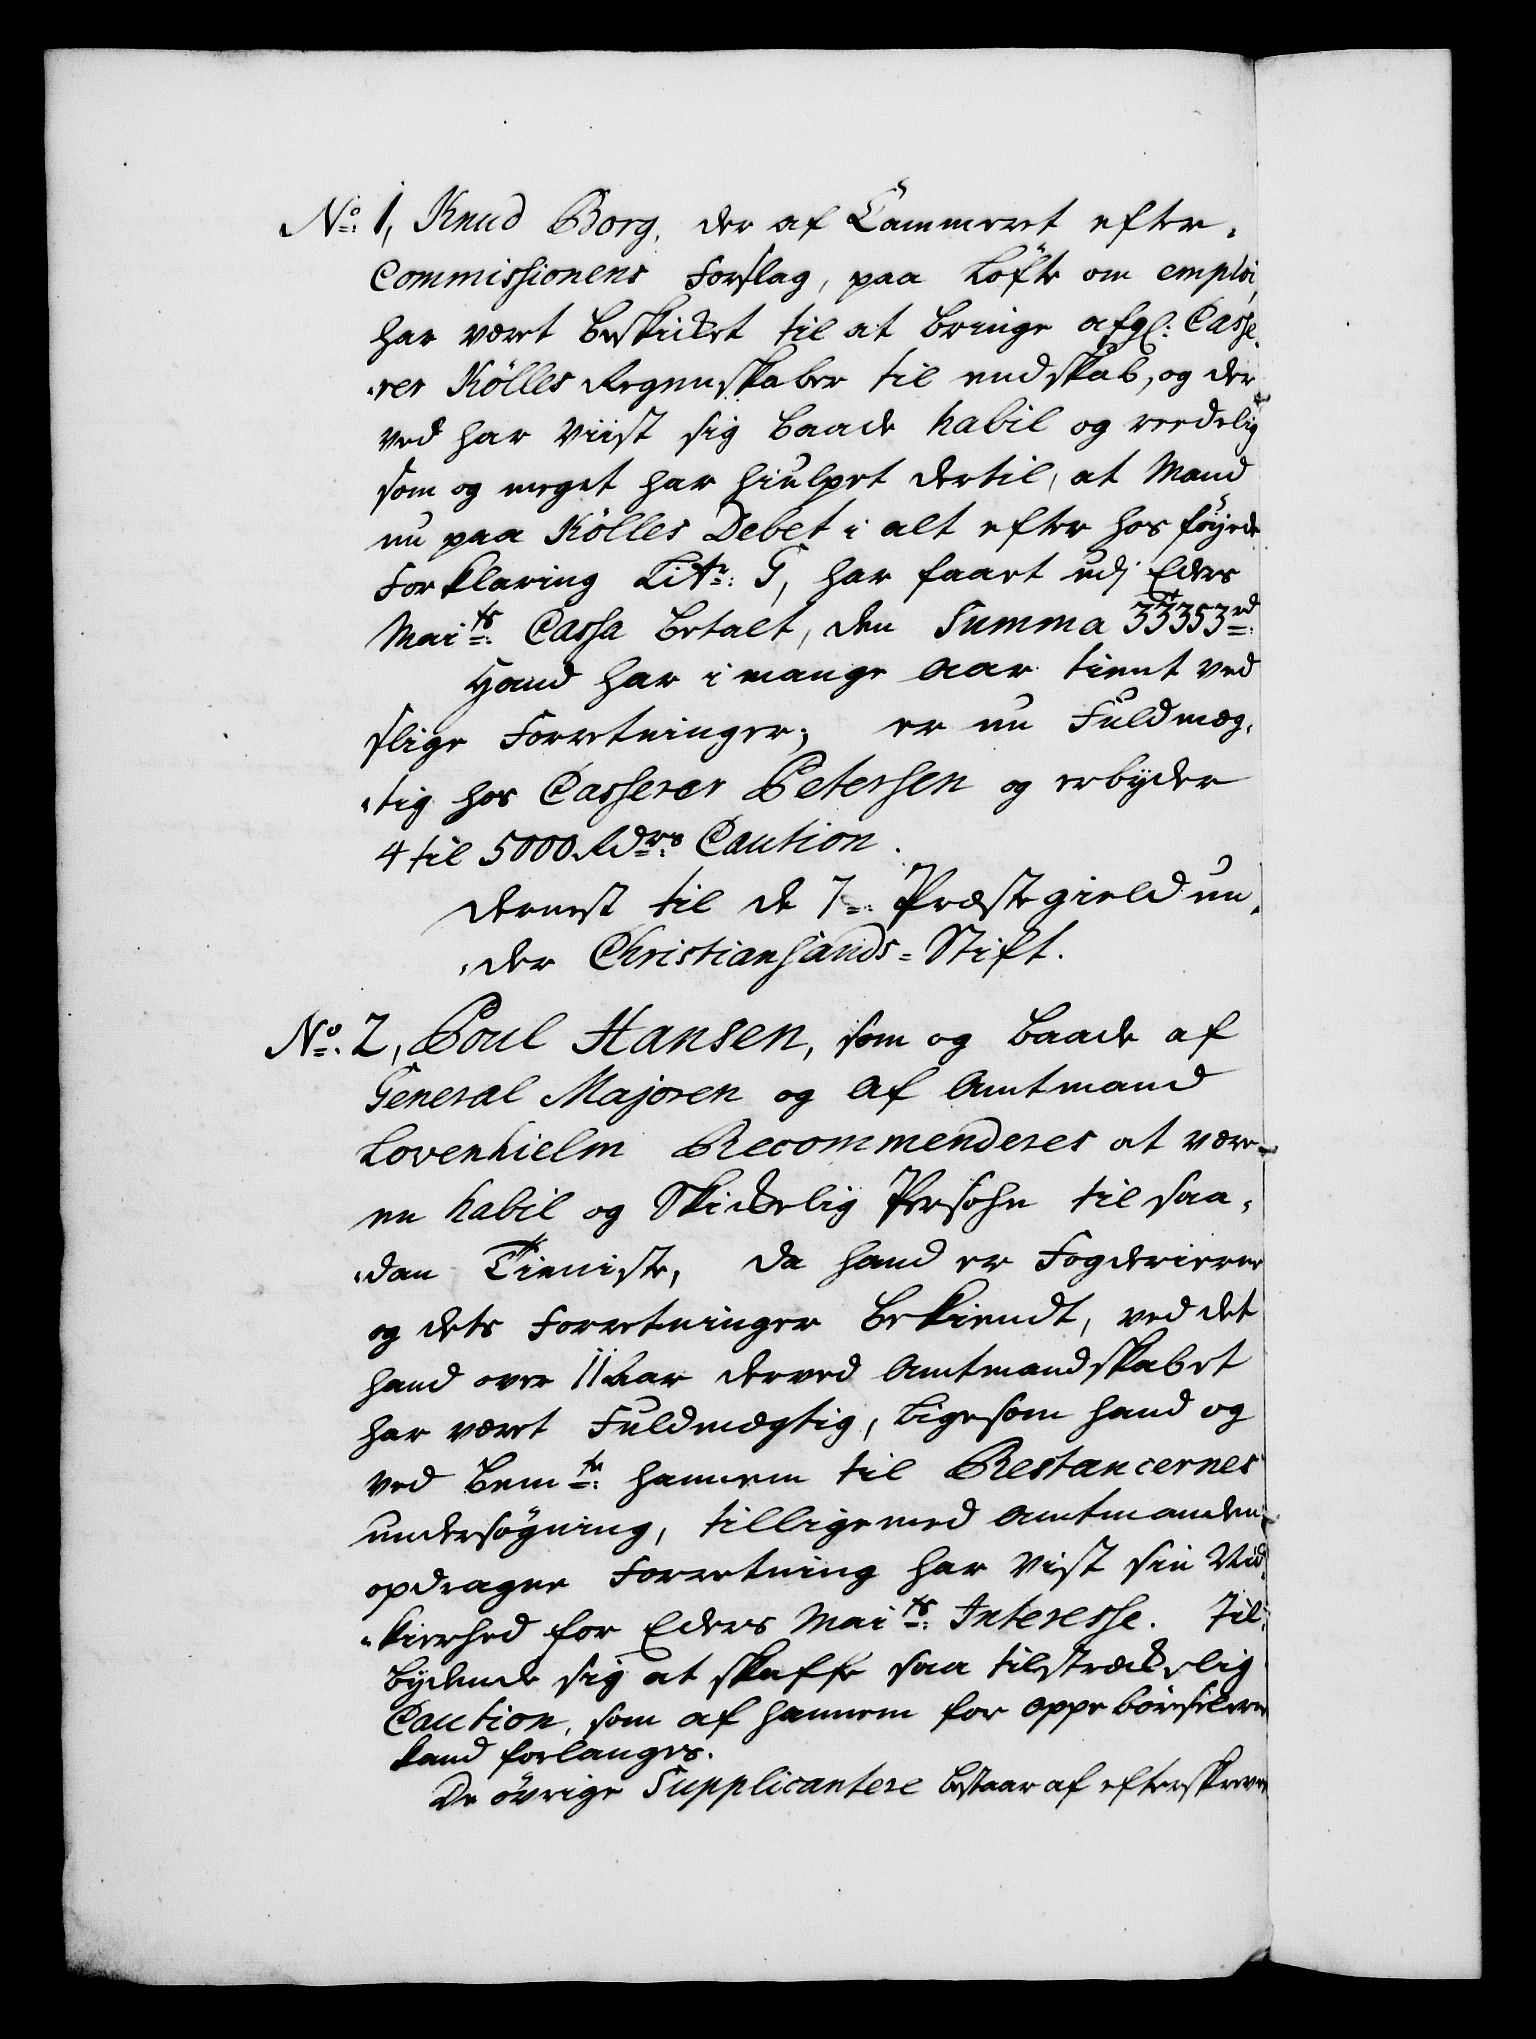 No: 1, Knud Borg, der af Cammeret efter
Commissionens Forslag, paa Løfte om emploi,
har været beskicket til at bringe afgl: Casse,
,rer Kölles Regenskaber til endskab, og der
ved har viist sig baade habil og reedelig
som og meget har hiulpet dertil, at Mand
nu paa Kölles Debet i alt efter hos föyede
Forklaring Litr: G, har faaet udj Eders
Maits: Cassa betalt, den Summa 33353 rd:
Hand har i mange Aar tient ved
slige Forretninger; er nu Fuldmæg,
,tig hos Casserer Petersen og erbyder
4 til 5000 Rdrs Caution.
Dernest til de 7: Præstegield un,
,der Christiansands-Stift.
No: 2, Poul Hansen, som og baade af
General Majoren og af Amtmand
Lovenhielm Recommenderes at være
en habil og Skickelig Persohn til saa,
,dan Tieniste, da hand er Fogderierne
og dets Forretninger bekiendt, ved det
hand over 11 Aar derved Amtmandskabet
har været Fuldmægtig, ligesom hand og
ved bemte: hannem til Restancernes
undersøgning, tillige med Amtmanden
opdragne Forretning har vist sin Vid,
,kierhed for Eders Maits: Interesse. Til,
bydende sig at skaffe saa tilstræckelig
Caution, som af hannem for oppebørsilerne
kand forlanges.
De övrige Supplicantere bestaar af efterskrevne